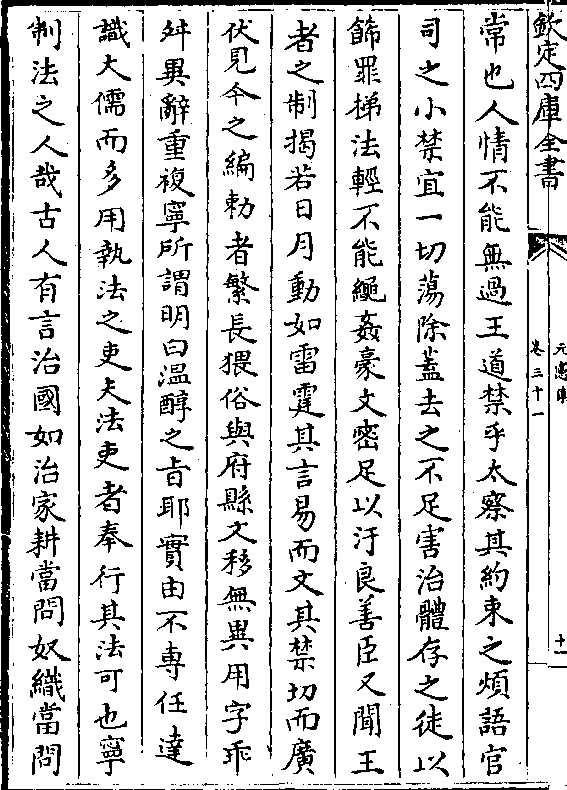 欽定四庫全書
元憲集
卷三十一
十一
常也人情不能無過王道禁乎太察其約束之煩語官
司之小禁宜一切蕩除蓋去之不足害治體存之徒以
飾罪梯法輕不能繩姦豪文密足以汙良善臣又聞王
者之制揭若日月動如雷霆其言易而文其禁切而廣
伏見今之編勅者繁長猥俗與府縣文移無異用字乖
舛異辭重複寧所謂明白溫醇之旨耶實由不專任達
識大儒而多用執法之吏夫法吏者奉行其法可也寧
制法之人哉古人有言治國如治家耕當問奴織當問